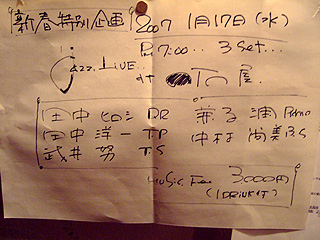 新春特別企画 2007 1月17日(水)
PM 7:00... 3 Set...
Jazz. LIVE..
at 石屋.
田中ヒロシ DR
田中洋一 TP 中村尚美 BS
武井努 T.S
Music Fee 3000円
(1DRINK付)